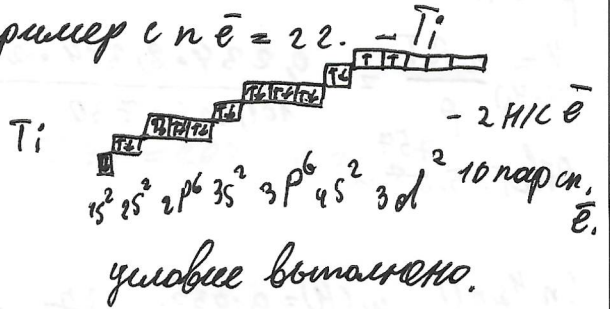 ример с n ē = 22. – Ti
Ti
- 2 н/с ē
1s² 2s² 2p⁶ 3s² 3p⁶ 4s² 3d² 10 пар сп.
ē.
условие выполнено.